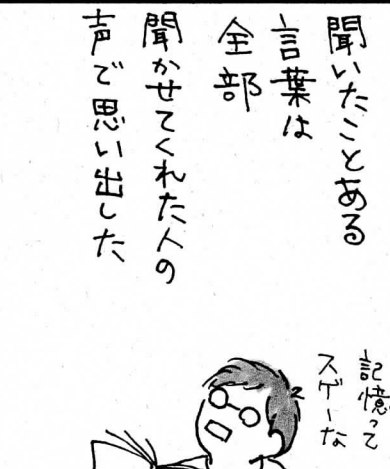 聞いたことある
言葉は
全部
聞かせてくれた人の
声で思い出した
記憶って
スゲーな